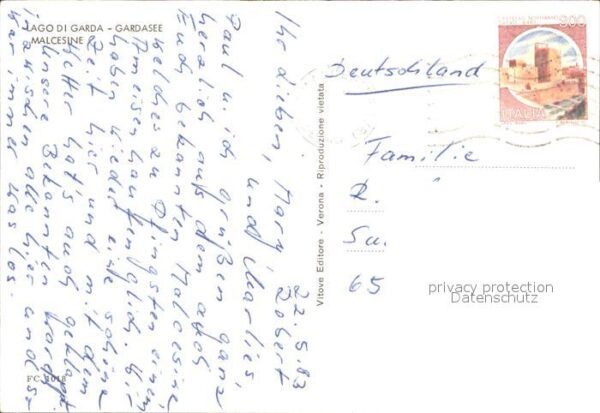 LAGO DI GARDA - GARDASEE
MALCESINE
22.5.83
Ihr lieben, Mary, Robert
und Marlies,
Paul u. ich grüßen ganz
herzlich aus dem auch
Euch bekannten Malcesine
welches zu Pfingsten einem
Ameisenhaufen glich. Wir
haben wieder eine schöne
Zeit hier und mit dem
Wetter hat's auch geklappt
Unsere Bekannten
inzwischen alle hier und es
war immer was los.
FC. 1018
Vitove Editore - Verona - Riproduzione vietata
ITALIA
Deutschland
Familie
R.
Su.
65
privacy protection
Datenschutz